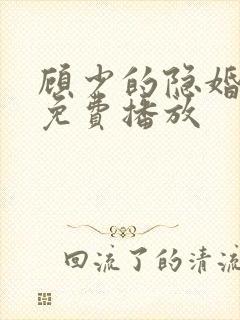 顾少的隐婚
免費播放
回流了的清流